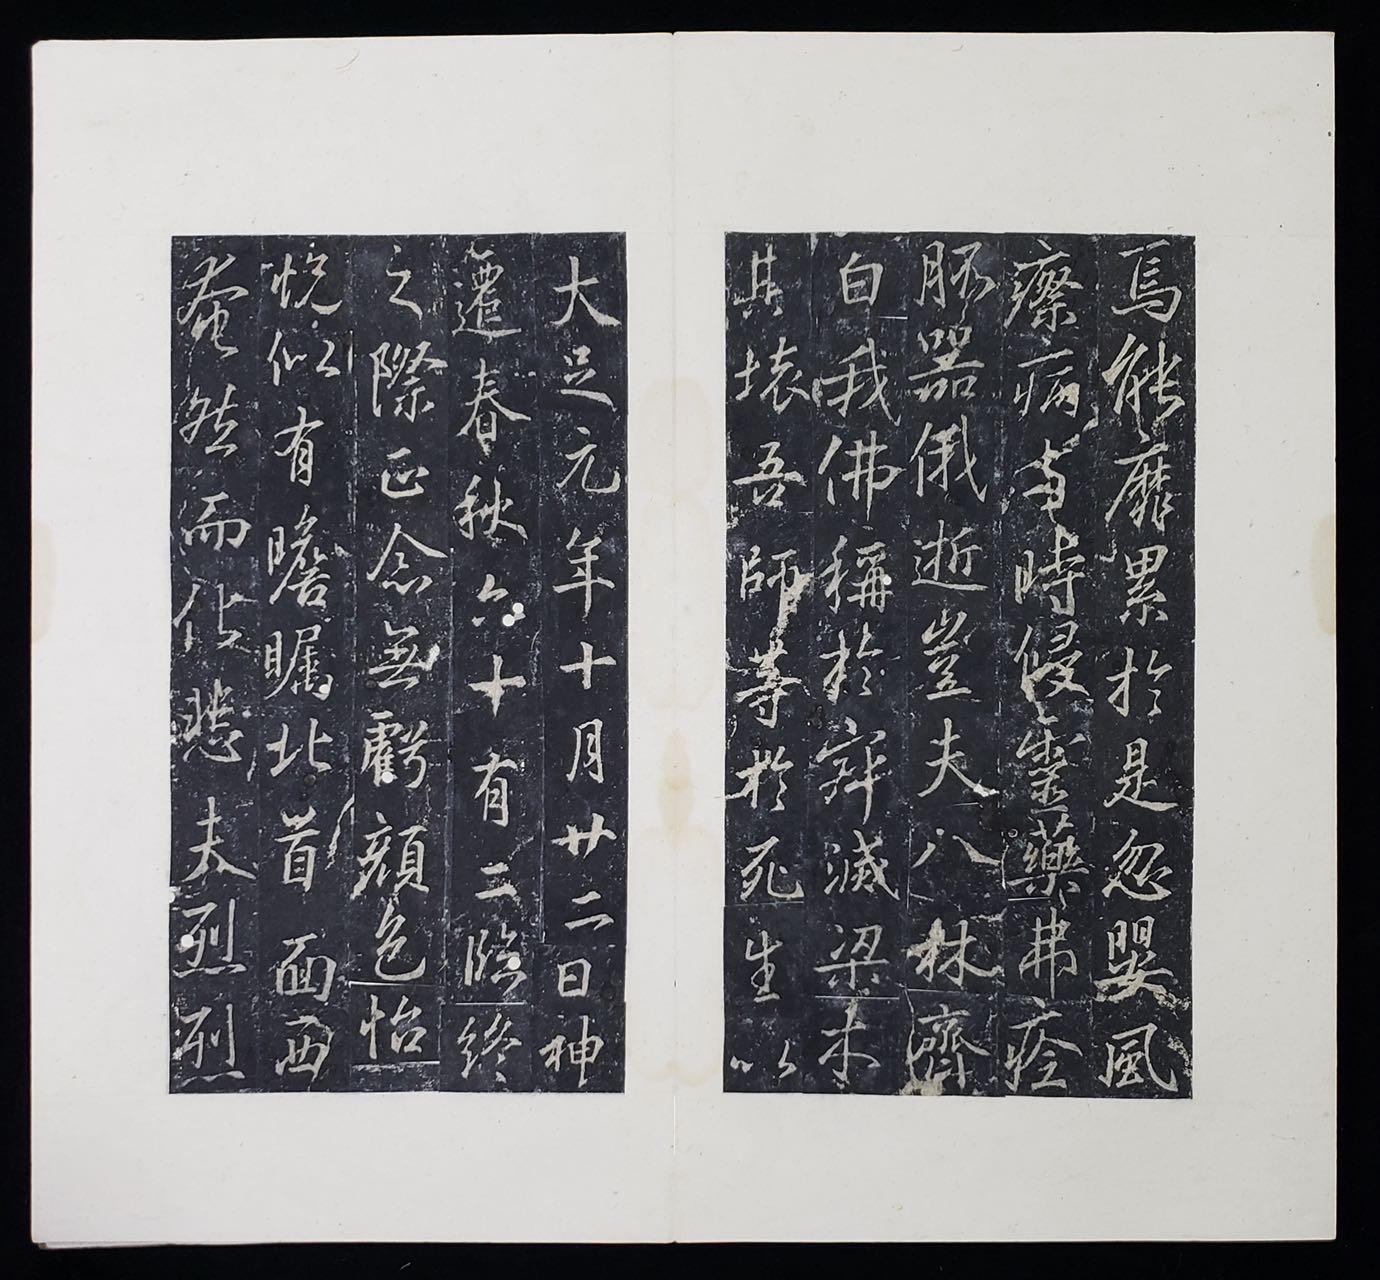 焉能靡累於是忽嬰風
瘵病與時侵靈藥弗痊
豚器俄逝豈夫八林濟
白我佛稱於寂滅梁木
其壞吾師等於死生以
大足元年十月廿二日神
遷春秋六十有二臨終
之際正念無虧顏色怡
悅似有瞻矚北首面西
奄然而化悲夫烈烈